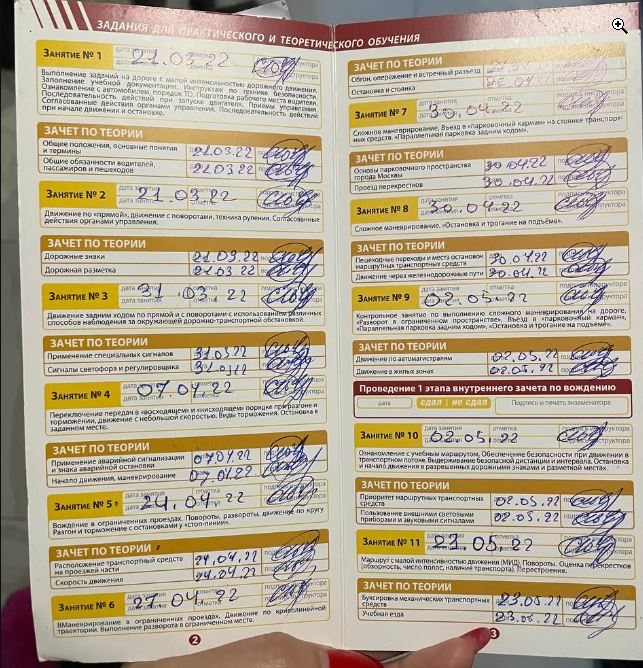 ЗАДАНИЯ ДЛЯ ПРАКТИЧЕСКОГО И ТЕОРЕТИЧЕСКОГО ОБУЧЕНИЯ
Занятие № 1 21.03.22
Выполнение заданий на дороге с малой интенсивностью дорожного движения.
Заполнение учебной документации. Инструктаж по технике безопасности.
Ознакомление с автомобилем, порядок ТО. Подготовка рабочего места водителя.
Последовательность действий при запуске двигателя. Приемы управления.
Согласованные действия органами управления. Последовательность действий
при начале движения и остановке.
ЗАЧЕТ ПО ТЕОРИИ
Общие положения, основные понятия
и термины 21.03.22
Общие обязанности водителей,
пассажиров и пешеходов 21.03.22
Занятие № 2 21.03.22
Движение по «прямой», движение с поворотами, техника руления. Согласованные
действия органами управления.
ЗАЧЕТ ПО ТЕОРИИ
Дорожные знаки 21.03.22
Дорожная разметка 21.03.22
Занятие № 3 31.03.22
Движение задним ходом по прямой и с поворотами с использованием различных
способов наблюдения за окружающей дорожно-транспортной обстановкой.
ЗАЧЕТ ПО ТЕОРИИ
Применение специальных сигналов 31.03.22
Сигналы светофора и регулировщика
Занятие № 4 07.04.22
Переключение передач в «восходящем» и «нисходящем» порядке при разгоне и
торможении, движение с небольшой скоростью. Виды торможения. Остановка в
заданном месте.
ЗАЧЕТ ПО ТЕОРИИ
Применение аварийной сигнализации
и знака аварийной остановки 07.04.22
Начало движения, маневрирование 07.04.22
Занятие № 5 24.04.22
Вождение в ограниченных проездах. Повороты, развороты, движение по кругу.
Разгон и торможение с остановками у «стоп-линии».
ЗАЧЕТ ПО ТЕОРИИ
Расположение транспортный средств
на проезжей части 24.04.22
Скорость движения 24.04.22
Занятие № 6 04.22
ВМаневрирование в ограниченных проездах. Движение по криволинейной
траектории. Выполнение разворота в ограниченном месте.
2
ЗАЧЕТ ПО ТЕОРИИ
Обгон, опережение и встречный разъезд
Остановка и стоянка
Занятие № 7 30.04.22
Сложное маневрирование. Въезд в «парковочный карман» на стоянке транспорт-
ных средств. «Параллельная парковка задним ходом».
ЗАЧЕТ ПО ТЕОРИИ
Основы парковочного пространства
города Москвы 30.04.22
Проезд перекрестков 30.04.22
Занятие № 8 30.04.22
Сложное маневрирование. «Остановка и трогание на подъёме».
ЗАЧЕТ ПО ТЕОРИИ
Пешеходные переходы и места остановок
маршрутных транспортных средств 30.04.22
Движение через железнодорожные пути 30.04.22
Занятие № 9 02.05.22
Контрольное занятие по выполнению сложного маневрирования на дороге.
«Разворот в ограниченном пространстве», Въезд в «парковочный карман»,
«Параллельная парковка задним ходом», «Остановка и трогание на подъёме».
ЗАЧЕТ ПО ТЕОРИИ
Движение по автомагистралям 02.05.22
Движение в жилых зонах 02.05.22
Проведение 1 этапа внутреннего зачета по вождению
дата сдал | не сдал Подпись и печать экзаменатора
Занятие № 10 02.05.22
Ознакомление с учебным маршрутом. Обеспечение безопасности при движении в
транспортном потоке. Выдерживание безопасной дистанции и интервала. Остановка
и начало движения в разрешенных дорожными знаками и разметкой местах.
ЗАЧЕТ ПО ТЕОРИИ
Приоритет маршрутных транспортных
средств 02.05.22
Пользование внешними световыми
приборами и звуковыми сигналами 02.05.22
Занятие № 11 23.05.22
Маршрут с малой интенсивностью движения (МИД). Повороты. Оценка перекрестков
(обзорность, число полос, наличие транспорта). Перестроение.
ЗАЧЕТ ПО ТЕОРИИ
Буксировка механических транспортных
средств 23.05.22
Учебная езда 23.05.22
3